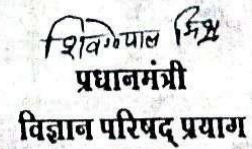 शिवगोपाल मिश्र
प्रधानमंत्री
विज्ञान परिषद् प्रयाग